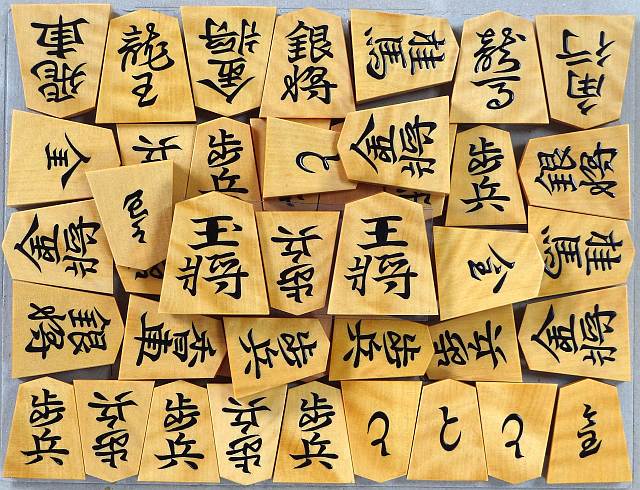 飛車
龍王
金将
銀将
桂馬
龍馬
角行
全
歩兵
歩兵
と
金将
歩兵
銀将
金将
王将
歩兵
王将
桂馬
銀将
香車
歩兵
歩兵
歩兵
金将
歩兵
歩兵
歩兵
歩兵
歩兵
と
と
と